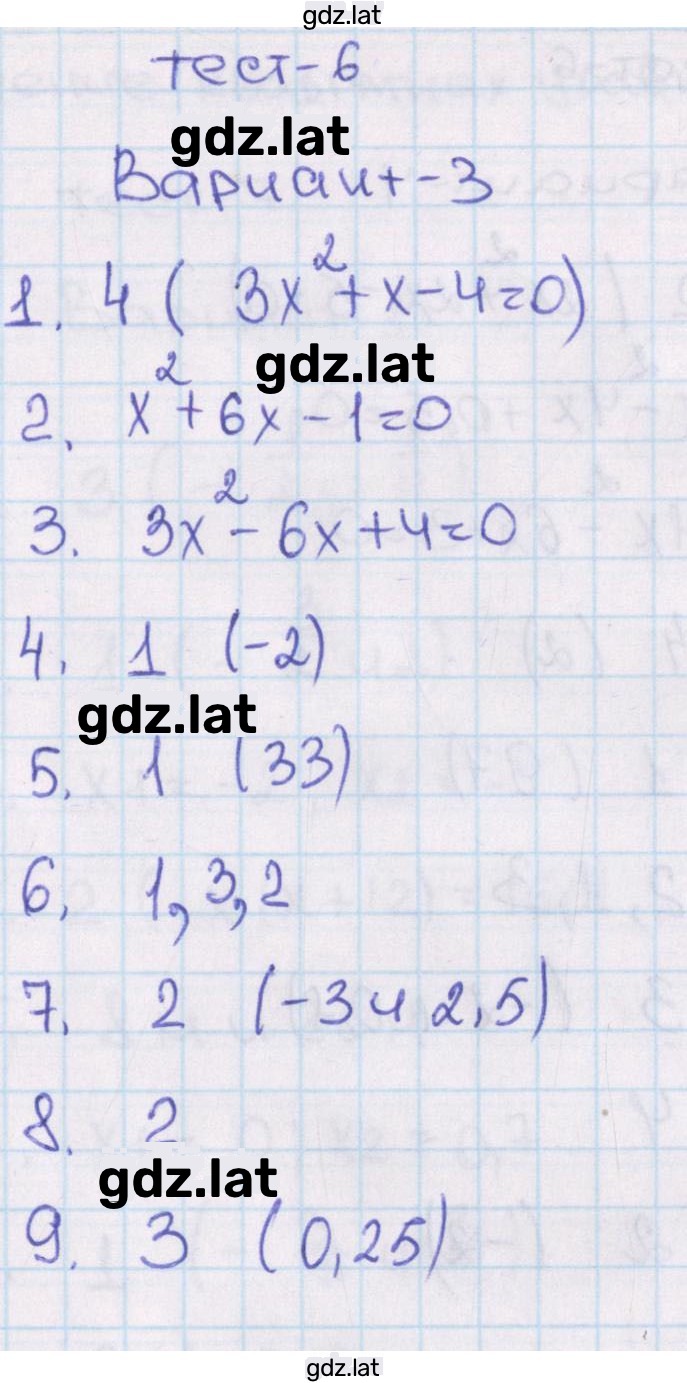 gdz.lat
тест-6
gdz.lat
Вариант-3
1. 4 ( 3x²+x-4=0)
gdz.lat
2. x²+6x-1=0
3. 3x²-6x+4=0
4. 1 (-2)
gdz.lat
5. 1 (33)
6. 1,3,2
7. 2 (-3 и 2,5)
8. 2
gdz.lat
9. 3 (0,25)
gdz.lat